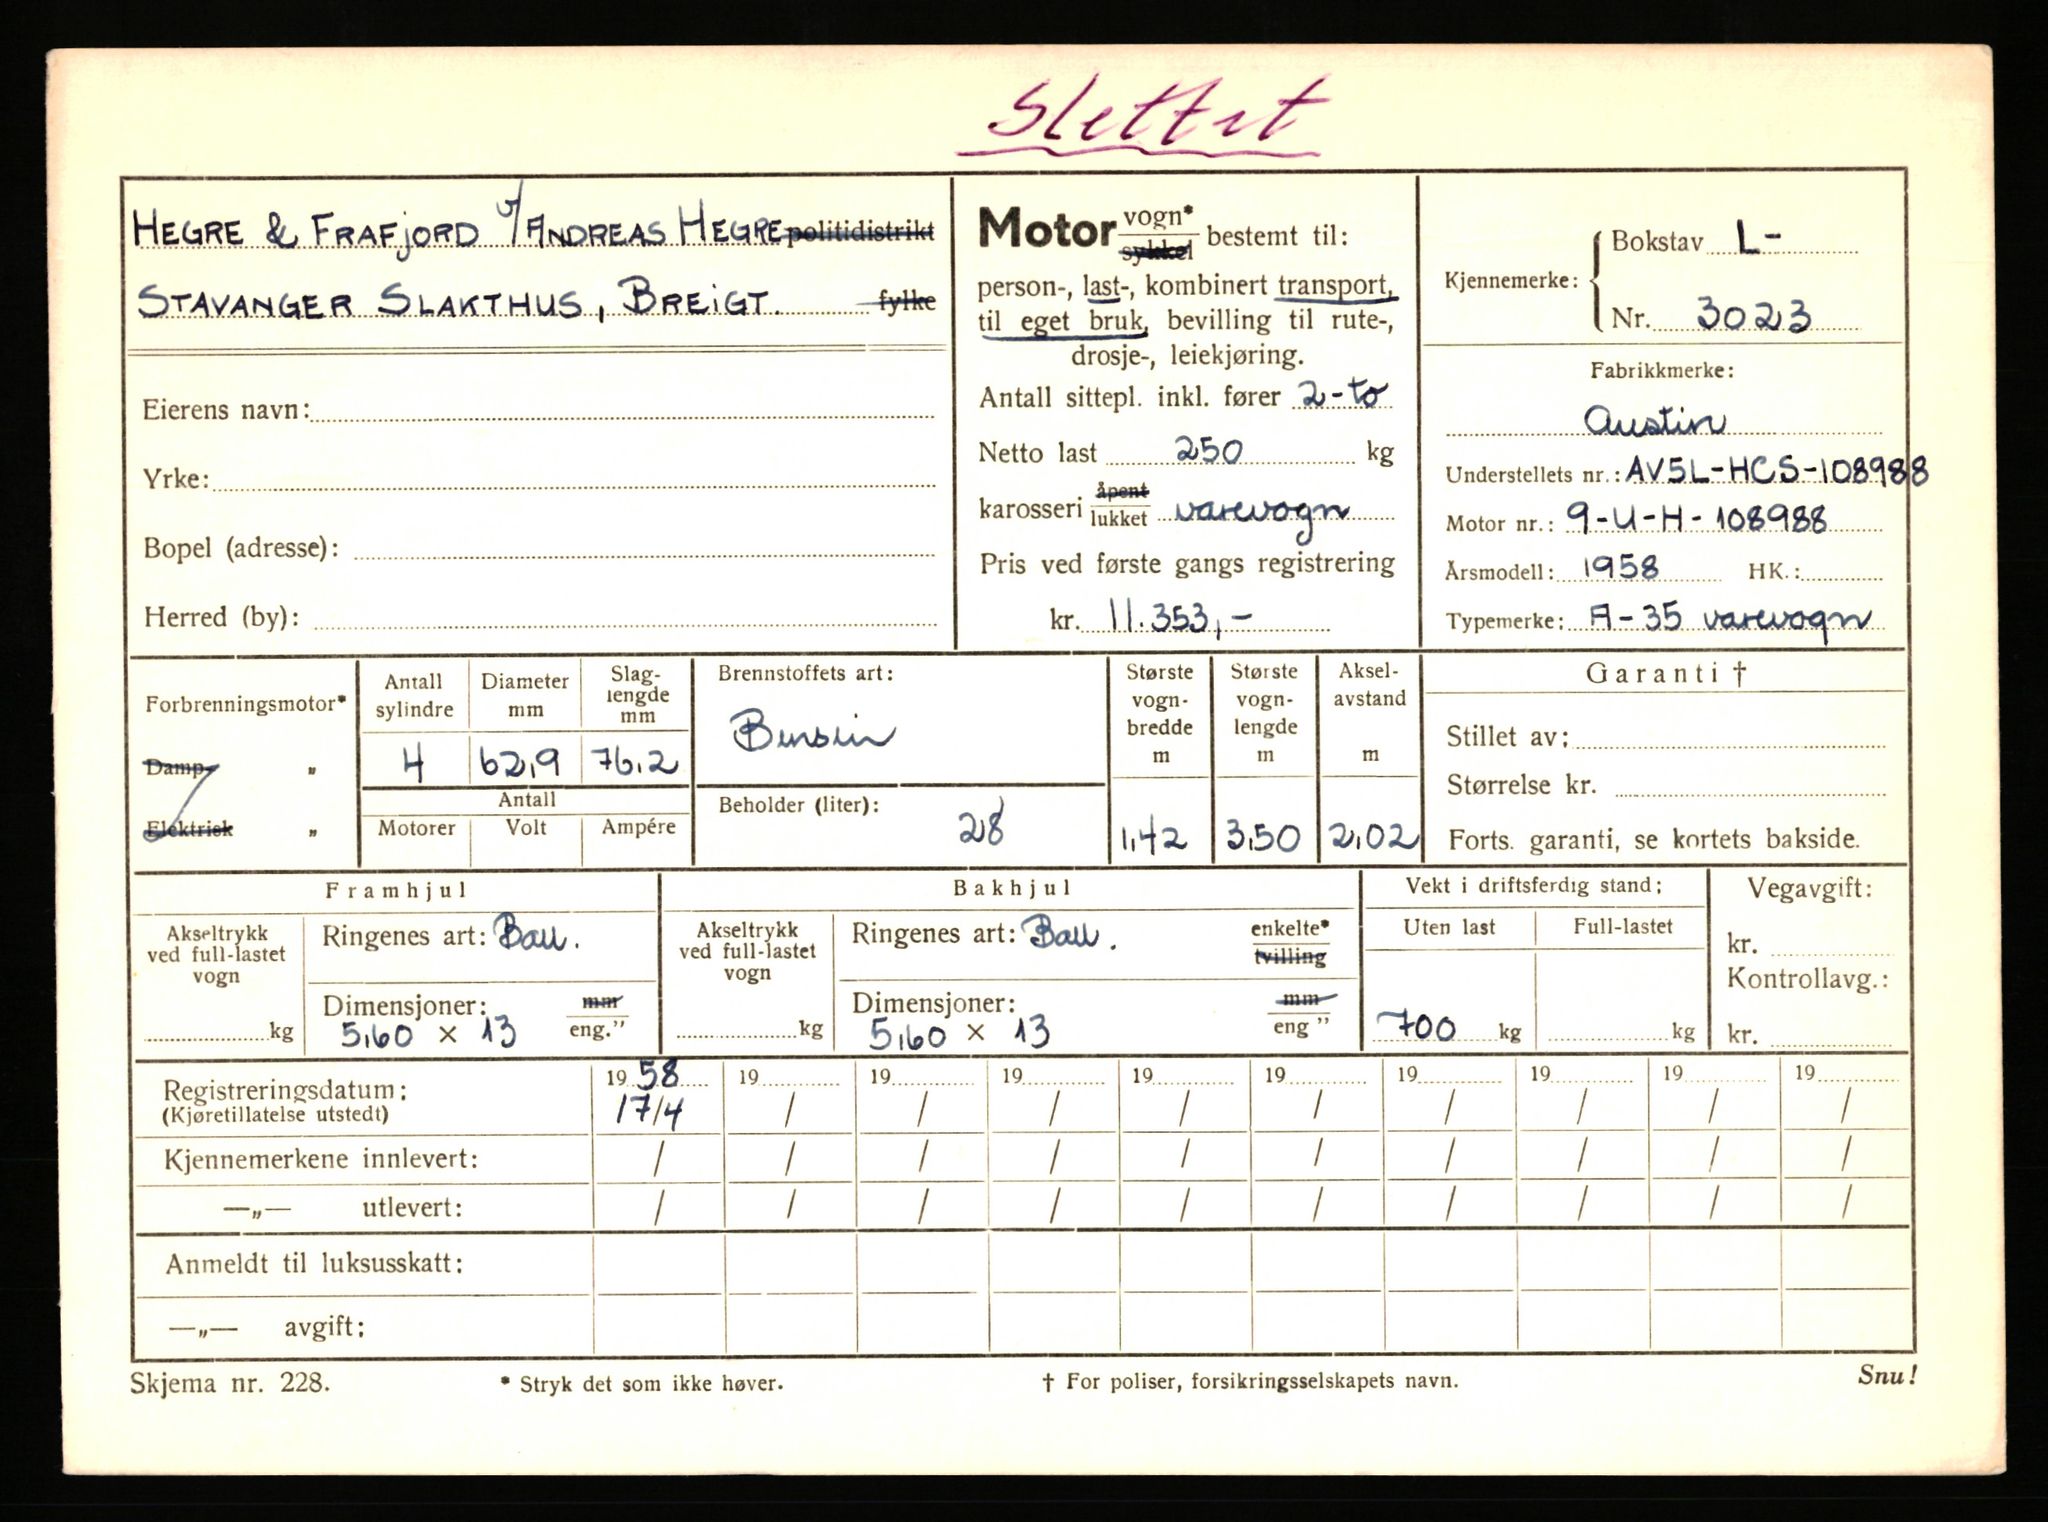 Slettet
HEGRE & FRAFJORD v/ ANDREAS HEGRE politidistrikt
STAVANGER SLAKTHUS, BREIGT. fylke
Eierens navn:
Yrke:
Bopel (adresse):
Herred (by):
Motor vogn* sykkel bestemt til:
person-, last-, kombinert transport,
til eget bruk, bevilling til rute-,
drosje-, leiekjøring.
Antall sittepl. inkl. fører 2-to
Netto last 250 kg
karosseri åpent lukket varevogn
Pris ved første gangs registrering
kr. 11.353,-
Kjennemerke: Bokstav L-
Nr. 3023
Fabrikkmerke:
Austin
Understellets nr.: AV5L-HCS-108988
Motor nr.: 9-U-H-108988
Årsmodell: 1958 HK.:
Typemerke: A-35 varevogn
Forbrenningsmotor*
Damp- „
Elektrisk „
Antall sylindre
4
Diameter mm
62,9
Slaglengde mm
76,2
Antall
Motorer Volt Ampére
Brennstoffets art:
Bensin
Beholder (liter):
28
Største vogn-
bredde
m
1,42
Største vogn-
lengde
m
3,50
Aksel-
avstand
m
2,02
Garanti †
Stillet av:
Størrelse kr.
Forts. garanti, se kortets bakside.
Framhjul
Akseltrykk
ved full-lastet
vogn
kg
Ringenes art: Ball.
Dimensjoner: mm
5,60 × 13 eng."
Bakhjul
Akseltrykk
ved full-lastet
vogn
kg
Ringenes art: Ball. enkelte*
tvilling
Dimensjoner: mm
5,60 × 13 eng "
Vekt i driftsferdig stand;
Uten last Full-lastet
700 kg kg
Vegavgift:
kr.
Kontrollavg.:
kr.
Registreringsdatum: 19 58 19 19 19 19 19 19 19 19 19
(Kjøretillatelse utstedt) 17/4 / / / / / / / / /
Kjennemerkene innlevert: / / / / / / / / / /
—„— utlevert: / / / / / / / / / /
Anmeldt til luksusskatt:
—„— avgift:
Skjema nr. 228. * Stryk det som ikke høver. † For poliser, forsikringsselskapets navn. Snu!